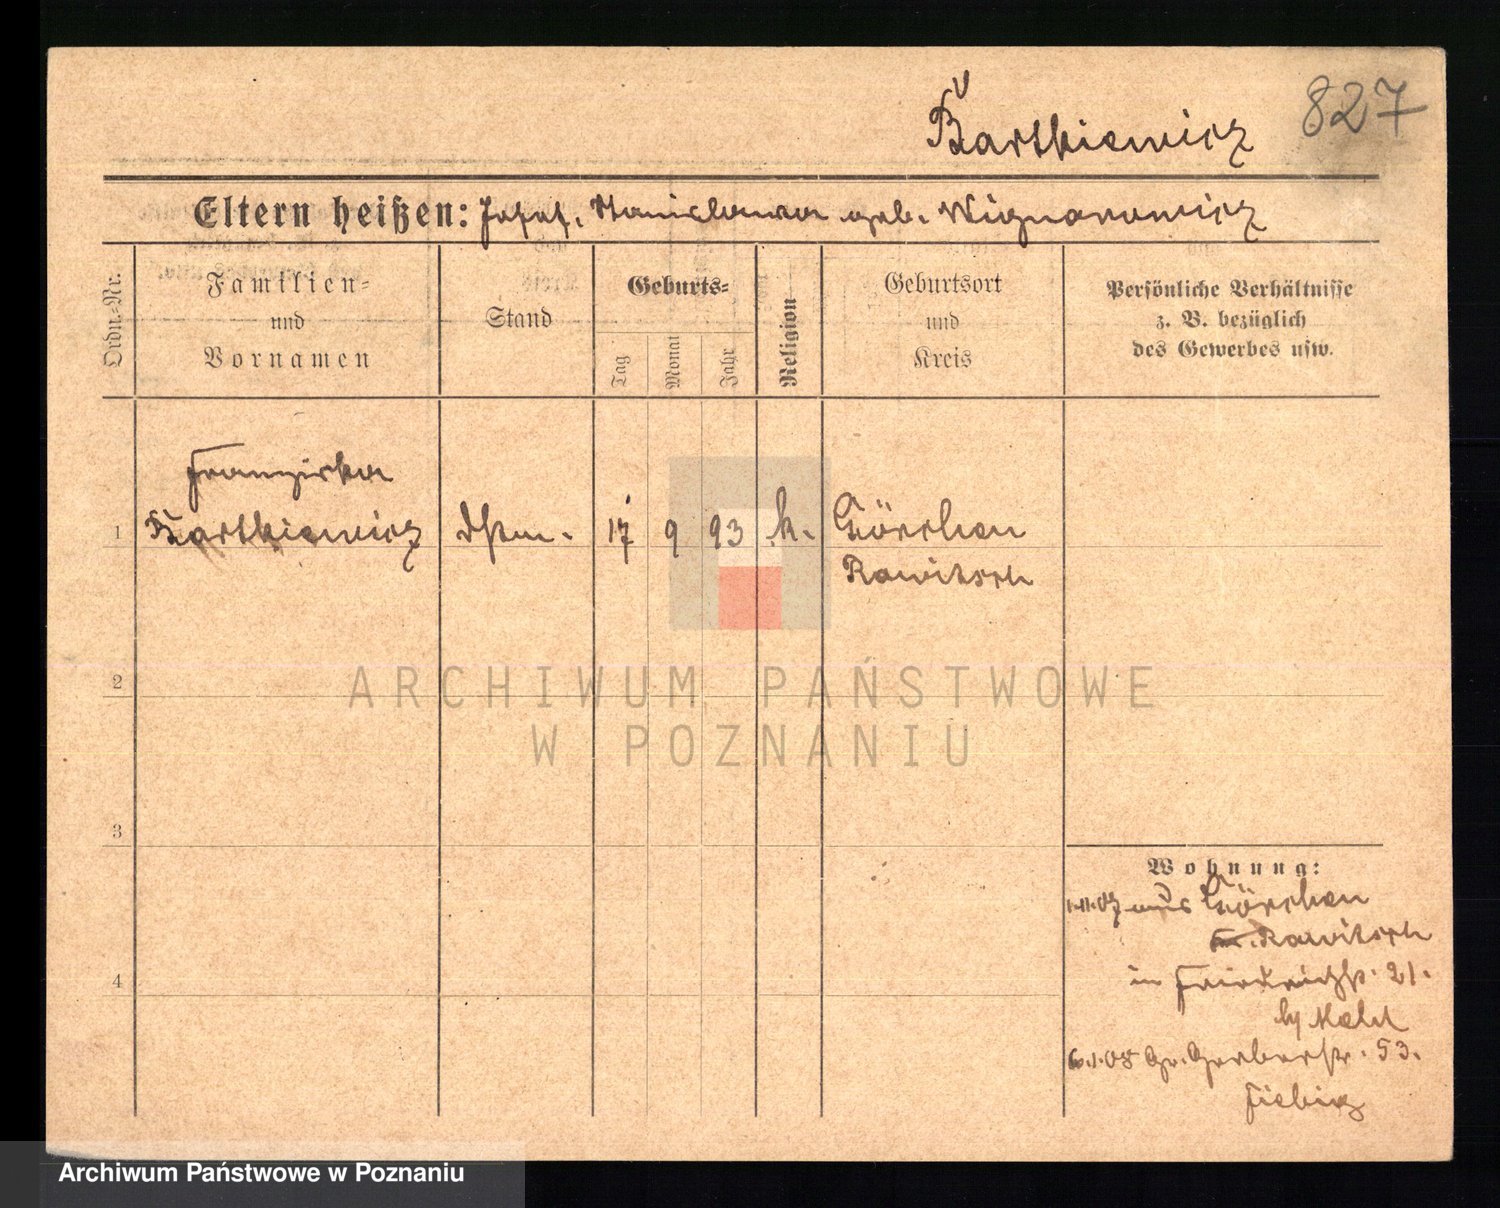 Bartkiewicz
827
Eltern heißen: Josef, Stanislawa geb. Wignarowicz
Ordn.-Nr.
Familien-
und
Vornamen
Stand
Geburts-
Tag
Monat
Jahr
Religion
Geburtsort
und
Kreis
Persönliche Verhältnisse
z. B. bezüglich
des Gewerbes usw.
Franziska
1 Bartkiewicz Dstm. 17 9 93 k. Görchen
Rawitsch
2
3
4
Wohnung:
1.11.07 aus Görchen
Kr. Rawitsch
in Friedrichstr. 21.
6.1.08 Gr. Gerberstr. 53.
Fiebig
ARCHIWUM PAŃSTWOWE
W POZNANIU
Archiwum Państwowe w Poznaniu